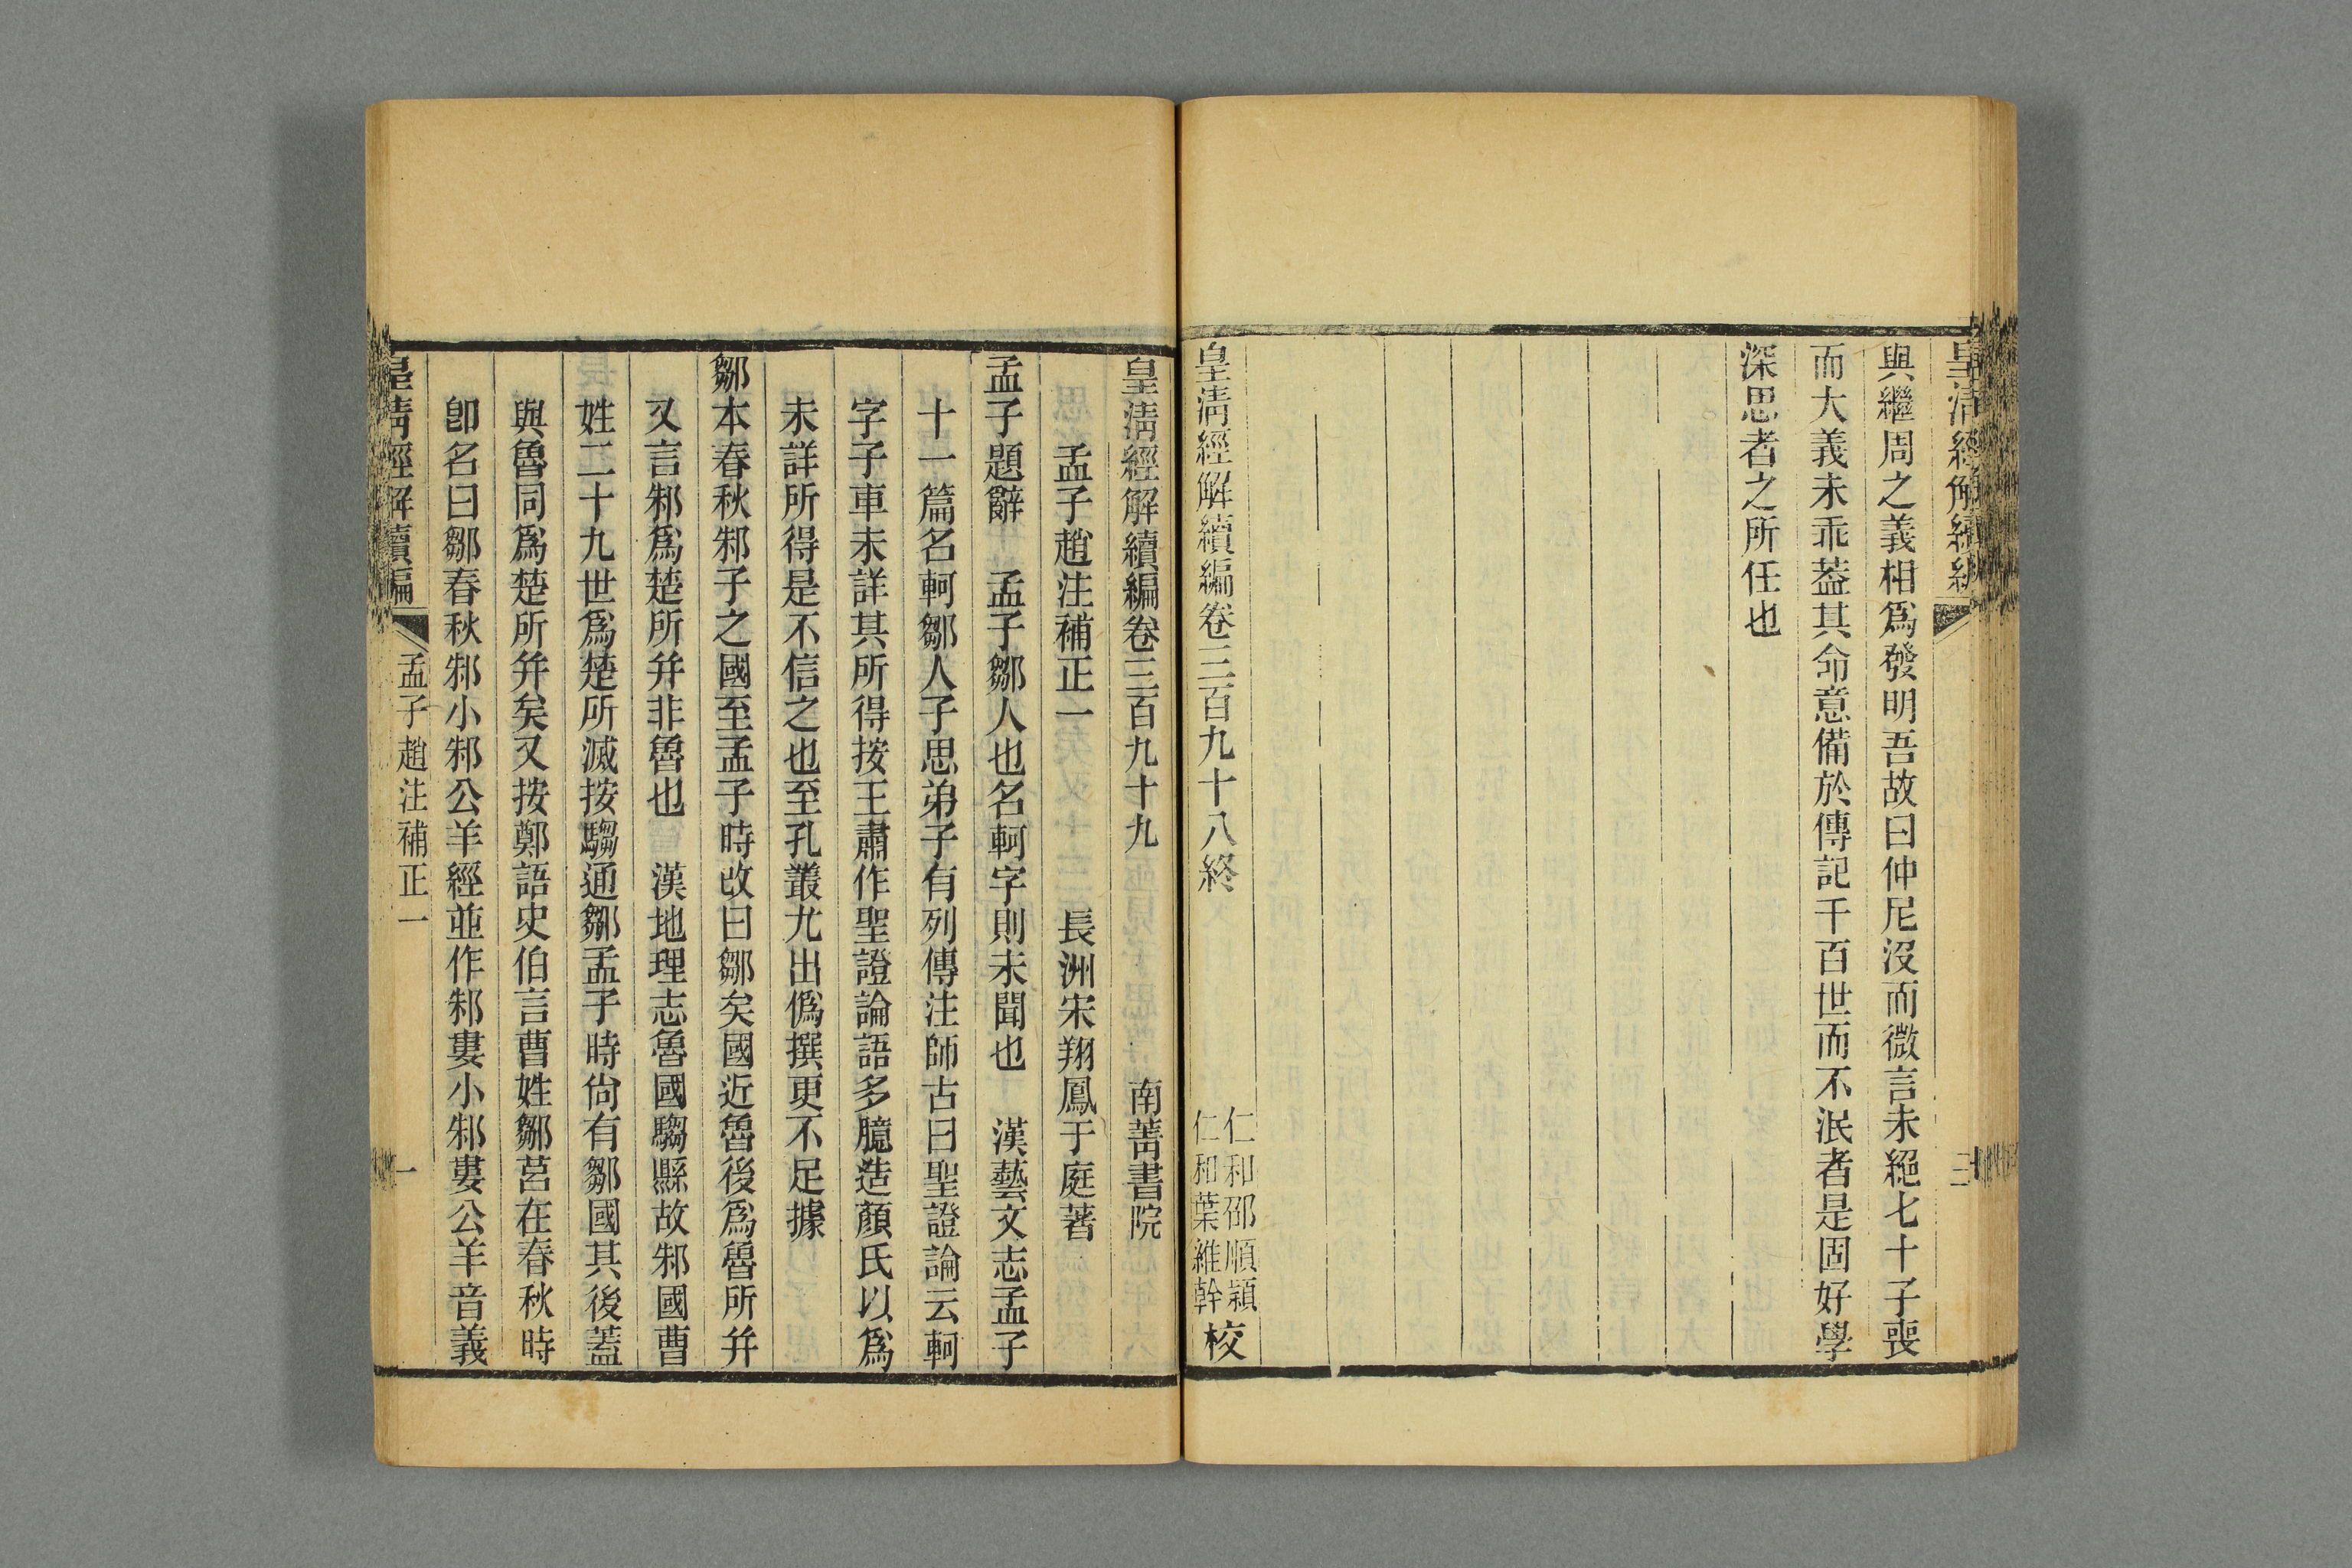 皇清經解續編
與繼周之義相爲發明吾故曰仲尼沒而微言未絕七十子喪
而大義未乖葢其命意備於傳記千百世而不泯者是固好學
深思者之所任也
皇淸經解續編卷三百九十八終
仁和邵順穎
仁和葉維幹
校
皇淸經解續編卷三百九十九
南菁書院
孟子趙注補正一
長洲宋翔鳳于庭著
孟子題辭 孟子鄒人也名軻字則未聞也 漢藝文志孟子
十一篇名軻鄒人子思弟子有列傳注師古曰聖證論云軻
字子車未詳其所得按王肅作聖證論語多臆造顏氏以爲
未詳所得是不信之也至孔叢尤出僞撰更不足據
鄒本春秋邾子之國至孟子時改曰鄒矣國近魯後爲魯所幷
又言邾爲楚所幷非魯也 漢地理志魯國騶縣故邾國曹
姓二十九世爲楚所滅按騶通鄒孟子時尙有鄒國其後蓋
與魯同爲楚所幷矣又按鄭語史伯言曹姓鄒莒在春秋時
卽名曰鄒春秋邾小邾公羊經並作邾婁小邾婁公羊音義
皇淸經解續編
孟子趙注補正一
一